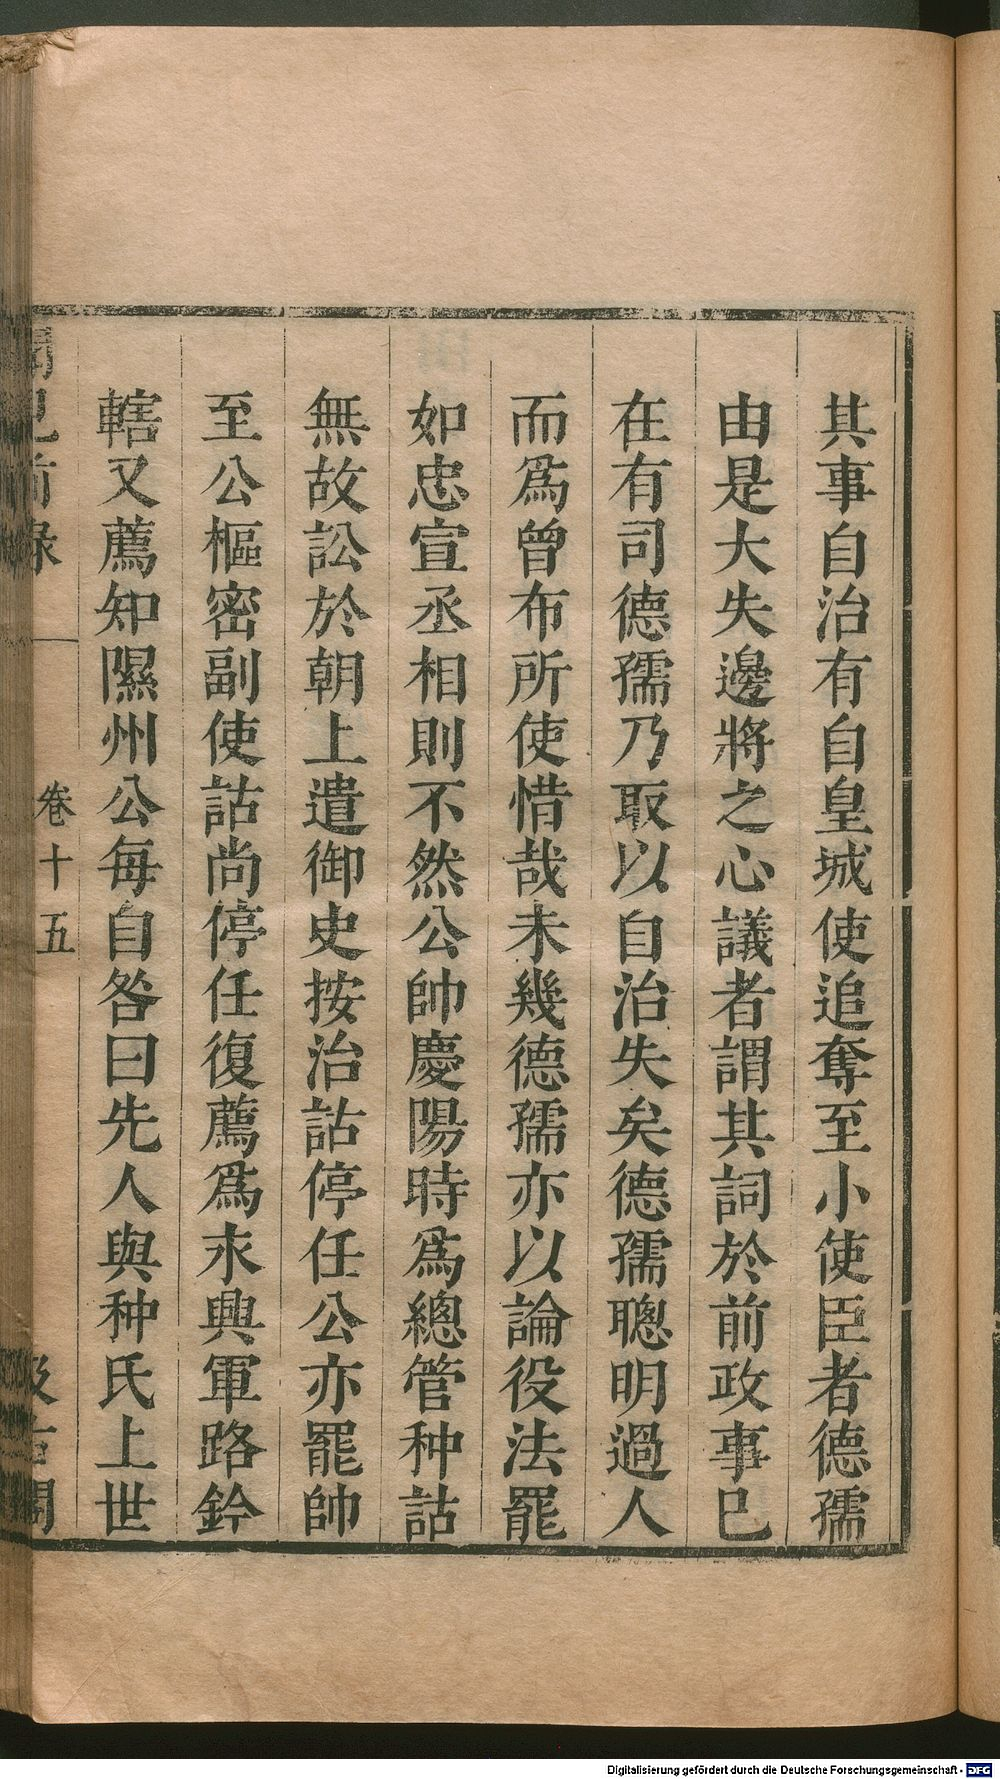 其事自治有自皇城使追奪至小使臣者德孺
由是大失邊將之心議者謂其詞於前政事已
在有司德孺乃取以自治失矣德孺聰明過人
而爲曾布所使惜哉未幾德孺亦以論役法罷
如忠宣丞相則不然公帥慶陽時爲總管种詁
無故訟於朝上遣御史按治詁停任公亦罷帥
至公樞密副使詁尚停任復薦爲永興軍路鈐
轄又薦知隰州公每自咎曰先人與种氏上世
聞見前錄
卷十五
汲古閣
Digitalisierung gefördert durch die Deutsche Forschungsgemeinschaft - DFG